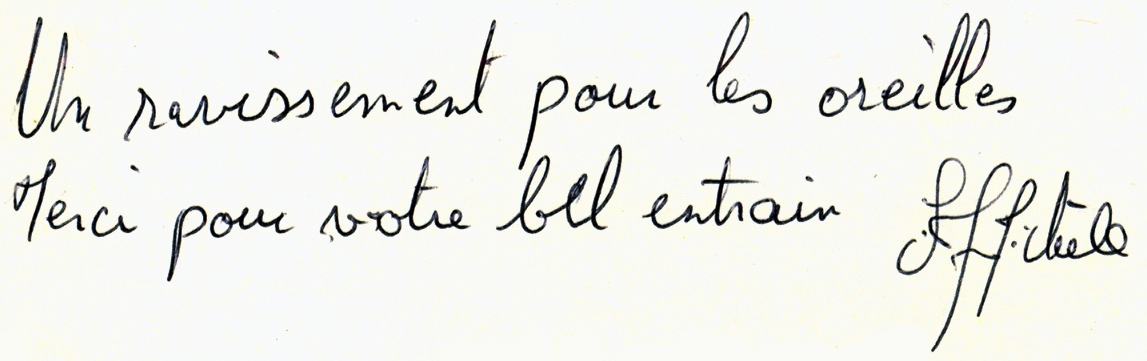 Un ravissement pour les oreilles
Merci pour votre bel entrain